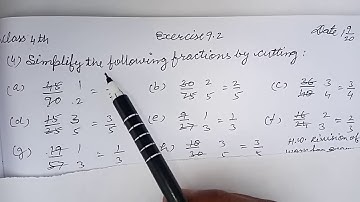 Class 4th Exercise 9.2 Date 9/20
(4) Simplify the following fractions by cutting:
(a) 45/90 1/2 = (b) 30/75 2/5 = 2/5 (c) 36/48 3/4 = 3/4
(d) 15/25 3/5 = 3/5 (e) 9/27 1/3 = 1/3 (f) 16/24 2/3 = 2/3
(g) 19/57 1/3 = 1/3 18/30 3/5 = 3/5 H.W. Revision of